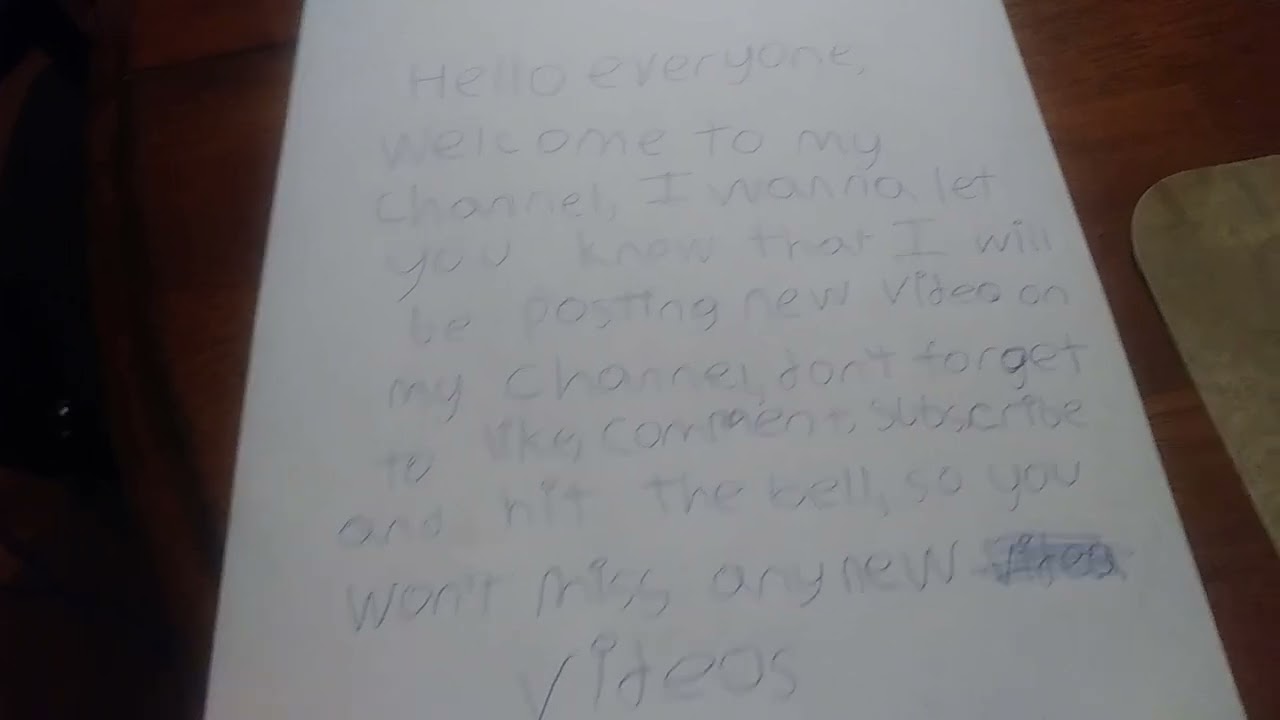 Hello everyone,
welcome to my
channel, I wanna let
you know that I will
be posting new video on
my channel, don't forget
to like, comment, subscribe
and hit the bell, so you
won't miss any new
videos